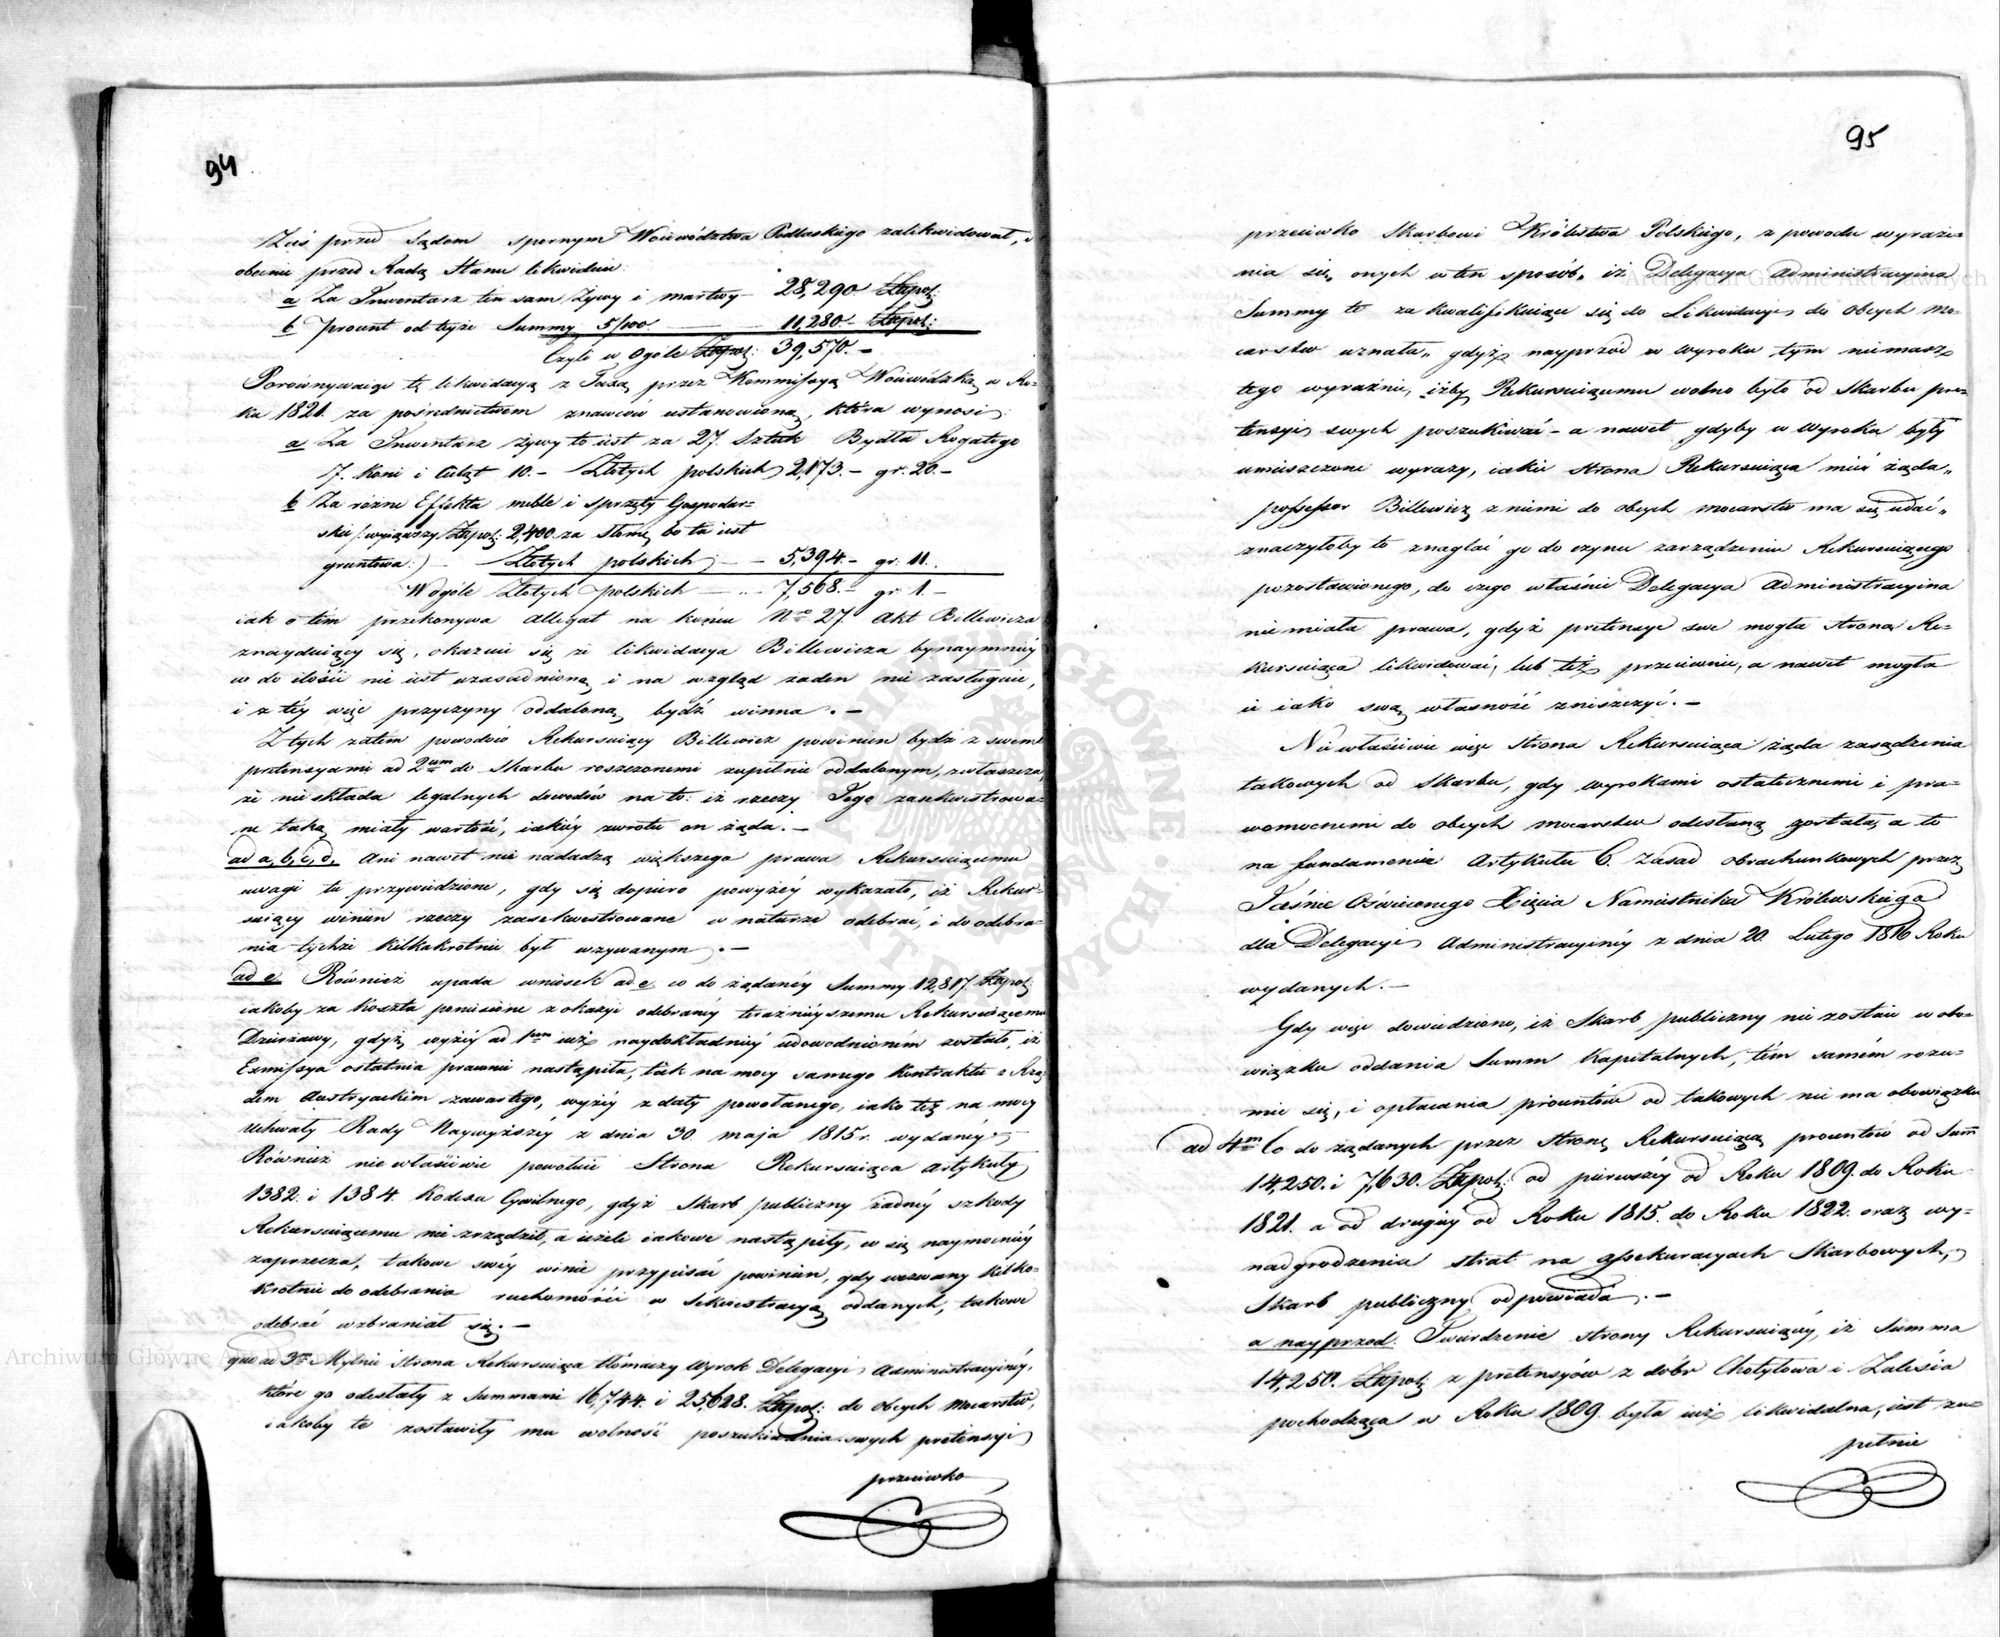 94
Zaś przed Sądem spornym Woiewództwa Podlaskiego zalikwidował, a
obecnie przed Radą Stanu likwiduie:
a Za Inwentarz ten sam Żywy i martwy 28,290 Złzpol:
b procent od teyże Summy 5/100. 11,280.- Złzpol:
Czyli w Ogóle Złpol: 39,570.-
Porównywaiąc tę likwidacyą z Taxą przez Kommissyą Woiewódzką w Ro=
ku 1821. za pośrednictwem znawców ustanowioną, która wynosi:
a Za Inwentarz żywy to iest za 27. Sztuk Bydła Rogatego
7. Koni i Cieląt 10.- Złotych polskich 2,173.- gr: 20.-
b Za różne Effekta meble i sprzęty Gospodar=
skie /: wyiąwszy Złpol: 2,400. za Słomę, bo ta iest
gruntowa:/ Złotych polskich - 5,394.- gr: 11.
W ogóle Złotych polskich - 7,568.- gr: 1.-
iak o tém przekonywa allegat na końcu Nro 27 Akt Billewicza
znayduiący się, okazuie się że likwidacya Billewicza bynaymniéy
co do ilości nie iest uzasadnioną i na wzgląd żaden nie zasługuie,
i z téy więc przyczyny oddaloną bydź winna.-
Z tych zatém powodów Rekursuiący Billewicz powinien bydź z swemi
pretensyami ad 2um do Skarbu roszczonemi zupełnie oddalonym, zwłaszcza
że nie składa legalnych dowodów na to: iż rzeczy Jego zasekwestrowa=
ne taką miały wartość, iakiéy zwrotu on żąda.-
ad a, b, c, d. Ani nawet nie nadadzą większego prawa Rekursuiącemu
uwagi tu przywiedzione, gdy się dopiero powyżéy wykazało, iż Rekur=
suiący winien rzeczy zasekwestrowane w naturze odebrać, i do odebra=
nia tychże kilkakrotnie był wzywanym.-
ad e Również upada wniosek ad e co do żądanéy Summy 12,817 Złpol:
iakoby za koszta poniesione z okazyi odebranéy teraźnieyszemu Rekursuiącemu
Dzierżawy, gdyż wyżéy ad 1um iuż naydokładniéy udowodnioném zostało, iż
Exmissya ostatnia prawnie nastąpiła, tak na mocy samego Kontraktu z Rzą=
dem Austryackim zawartego, wyżéy z daty powołanego, iako też na mocy
Uchwały Rady Naywyższéy z dnia 30. maja 1815 r. wydanéy.
Również niewłaściwie powołuie Strona Rekursuiąca artykuły
1382. i 1384. Kodexu Cywilnego, gdyż Skarb publiczny żadnéy szkody
Rekursuiącemu nie zrządził, a ieżeli iakowe nastąpiły, co się naymocniéy
zaprzecza, takowe swéy winie przypisać powinien, gdy wezwany kilko=
krotnie do odebrania ruchomości w Sekwestracyą oddanych, takowe
odebrać wzbraniał się.-
que ad 3um Mylnie strona Rekursuiąca tłómaczy wyrok Delegacyi Administracyinéy,
które go odesłały z Summami 16,744. i 25,628. Złpol: do obcych mocarstw,
iakoby te zostawiły mu wolność poszukiwania swych pretensyi
przeciwko
95
przeciwko Skarbowi Królestwa Polskiego, z powodu wyraże=
nia się, onych w ten sposób „ iż Delegacya Administracyina
Summy te za kwalifikuiące się do Likwidacyi do obcych mo=
carstw uznała „ gdyż nayprzód w wyroku tym niemasz
tego wyraźnie, iżby Rekursuiącemu wolno było od Skarbu pre=
tensyi swych poszukiwać - a nawet gdyby w wyroku były
umieszczone wyrazy, iakie strona Rekursuiąca mieć żąda „
possessor Billewicz z niemi do obcych mocarstw ma się udać „
znaczyłoby to znaglać go do czynu zarządzeniu Rekursuiącego
pozostawionego, do czego właśnie Delegacya Administracyina
nie miała prawa, gdyż pretensye swe mogła strona Re=
kursuiąca likwidować, lub też przeciwnie, a nawet mogła
ie iako swą własność zniszczyć.-
Niewłaściwie więc strona Rekursuiąca żąda zasądzenia
takowych od Skarbu, gdy wyrokami ostatecznemi i pra=
womocnemi do obcych mocarstw odesłaną została, a to
na fundamencie Artykułu 6. zasad obrachunkowych przez
Jaśnie Oświeconego Xięcia Namiestnika Królewskiego
dla Delegacyi Administracyinéy z dnia 20. Lutego 1816 Roku
wydanych.-
Gdy więc dowiedziono, iż Skarb publiczny nie zostaie w obo=
wiązku oddania Summ Kapitalnych, tém samém rozu=
mie się, i opłacania procentów od takowych nie ma obowiązku
ad 4um Co do żądanych przez stronę Rekursuiącą procentów od Summ
14,250. i 7,630. Złpol: od pierwszéy od Roku 1809. do Roku
1821. a od drugiéy od Roku 1815. do Roku 1822. oraz wy=
nadgrodzenia strat na assekuracyach Skarbowych,
Skarb publiczny odpowiada.-
a nayprzod. Twierdzenie strony Rekursuiącéy, iż Summa
14,250. Złpol: z pretensyów z dóbr Chotyłowa i Zalesia
pochodząca w Roku 1809. była iuż likwidalna, iest zu=
pełnie
Archiwum Główne Akt Dawnych
Archiwum Główne Akt Dawnych
ARCHIWUM GŁÓWNE AKT DAWNYCH